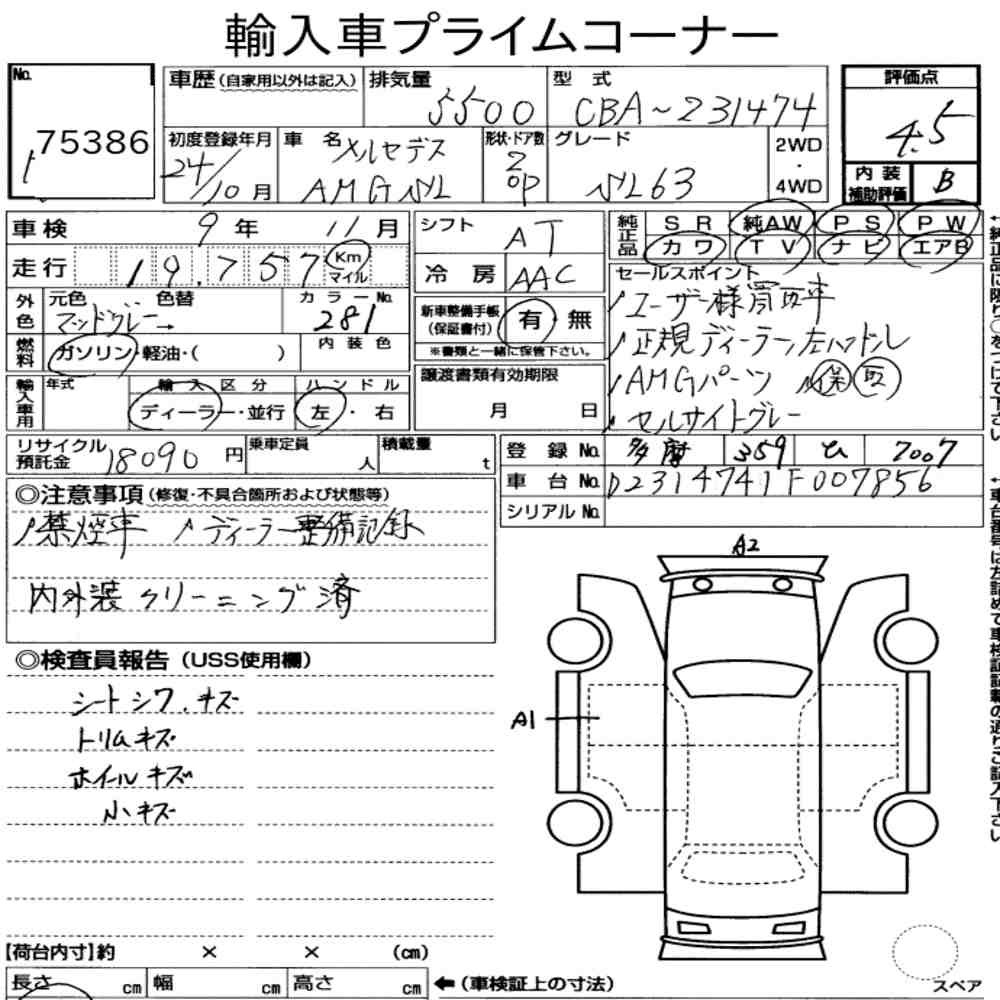 輸入車プライムコーナー
No.
75386
1
車歴(自家用以外は記入)
排気量
5500
型 式
CBA~231474
評価点
4.5
内装補助評価
B
初度登録年月
24/10月
車 名
メルセデス
AMG SL
形状・ドア数
2
OP
グレード
SL63
2WD
・
4WD
車検 9年 11月
走行 19,757 Km
マイル
外色
元色 色替
マッドグレー→
カラーNo.
281
燃料
ガソリン・軽油・( )
内装色
輸入車用
年式
輸入区分
ディーラー・並行
ハンドル
左・右
シフト AT
冷房 AAC
新車整備手帳
(保証書付)
有・無
※書類と一緒に保管下さい。
譲渡書類有効期限
月 日
純正品
SR 純AW PS PW
カワ TV ナビ エアB
セールスポイント
ユーザー様買取車
正規ディーラー,左ハンドル
AMGパーツ 保 取
セルサイトグレー
リサイクル預託金 18090円
乗車定員 人
積載量 t
登録No. 多摩 359 ひ 7007
車台No. D2314741F007856
シリアルNo.
◎注意事項(修復・不具合箇所および状態等)
禁煙車 ディーラー整備記録
内外装クリーニング済
◎検査員報告(USS使用欄)
シートシワ、キズ
トリムキズ
ホイールキズ
小キズ
A2
A1
【荷台内寸】約 × × (cm)
長さ cm 幅 cm 高さ cm
←(車検証上の寸法)
スペア
←純正品に限り○をつけて下さい
←車台番号は左詰めで車検証記載の通りご記入下さい